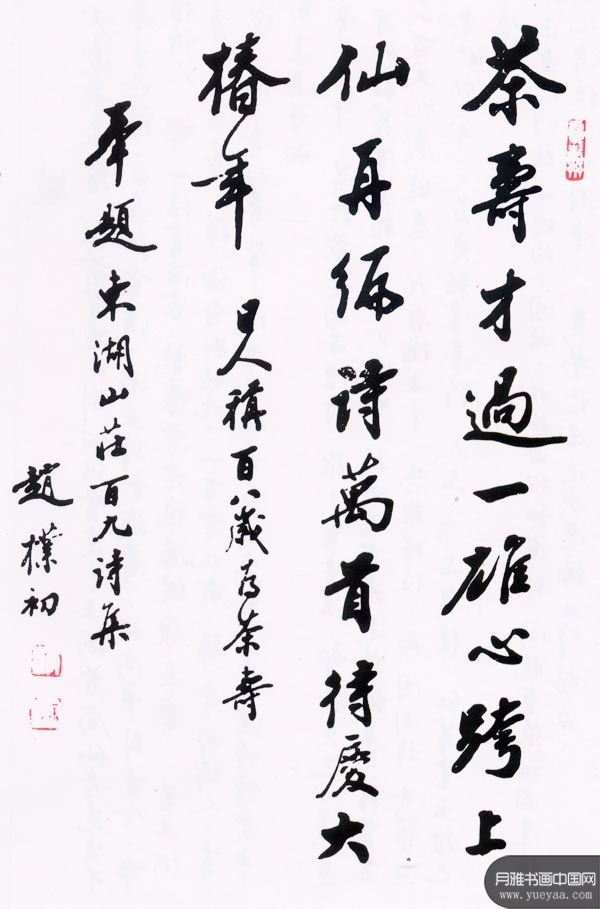 茶壽才過一雄心跨上
仙再編詩萬首待慶大
椿年 日人稱百八歲為茶壽
奉題東湖山莊百九詩集
趙樸初
月雅书画中国网
www.yueyaa.com